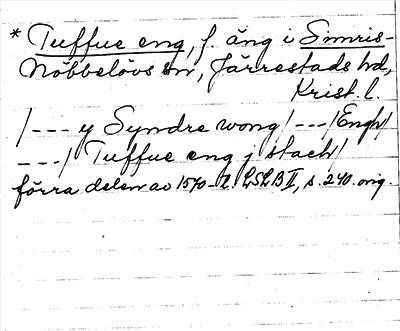 * Tuffue eng, f. äng i Simris-
Nöbbelövs sn, Järrestads hd,
Krist. l.
/--- y Syndre wong/---/Engh/
---/ Tuffue eng j stach/
förra delen av 1570-t. LSLB II, s. 240. orig.